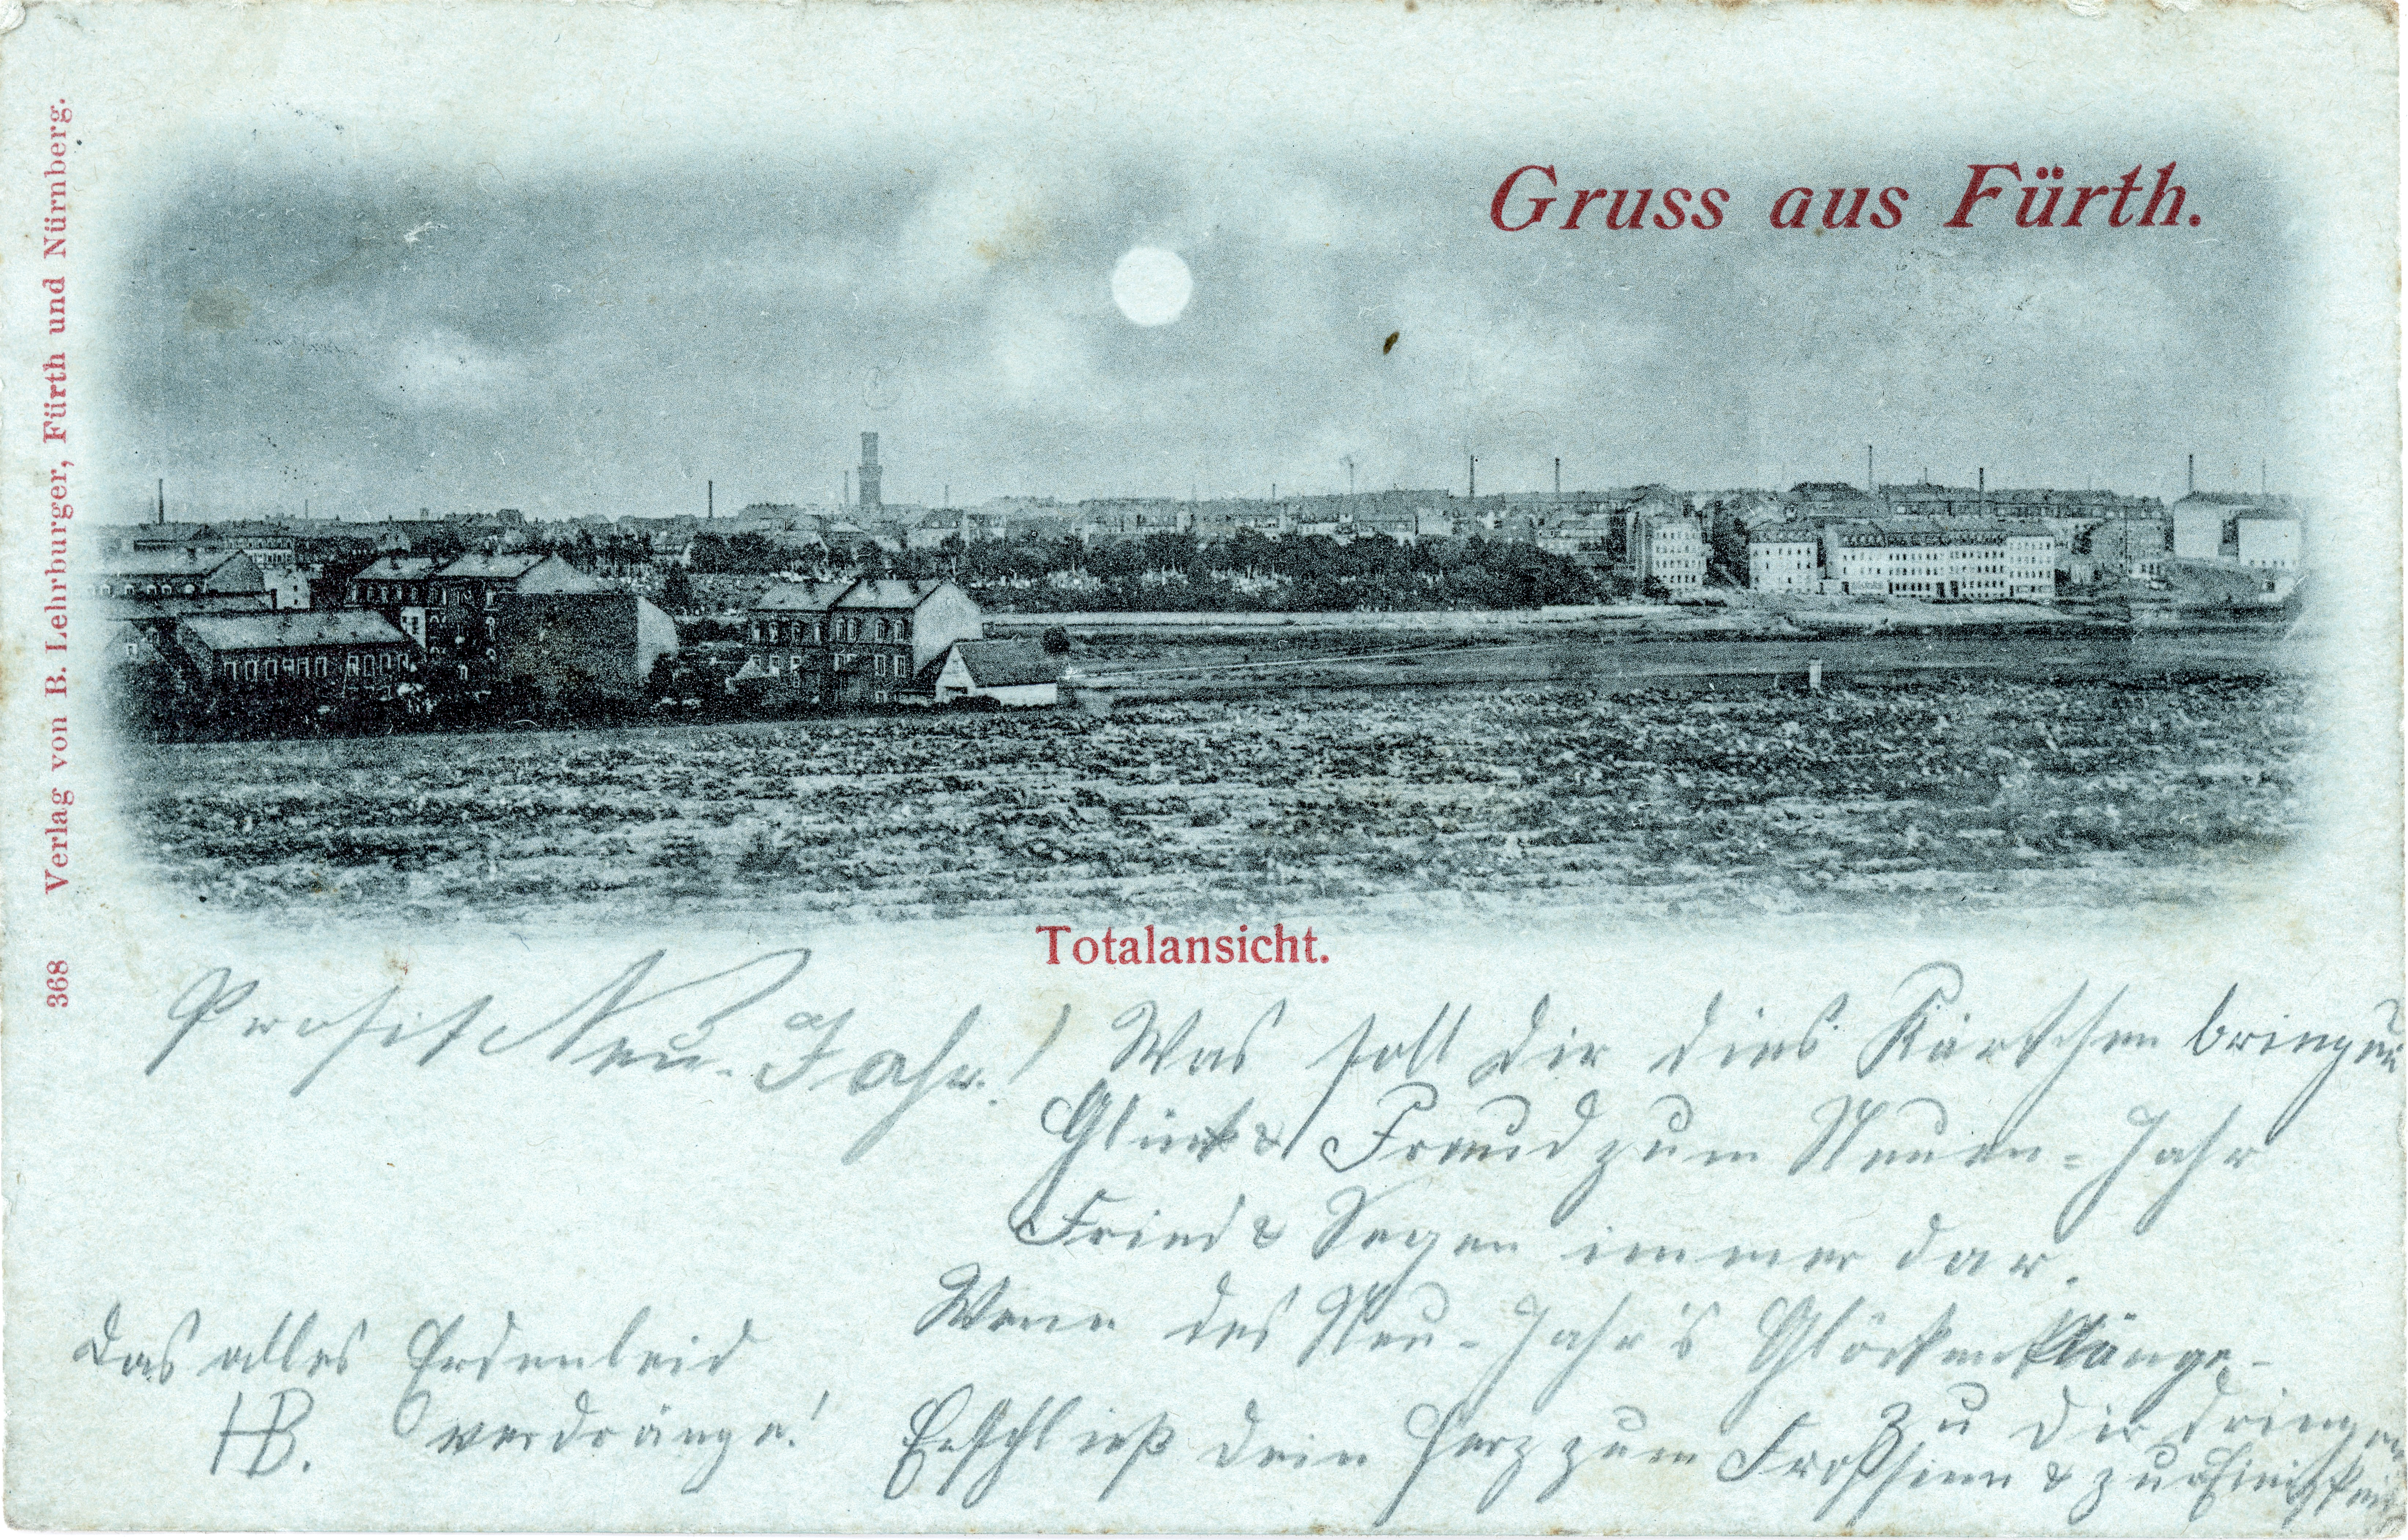 Gruss aus Fürth.
368 Verlag von B. Lehrburger, Fürth und Nürnberg.
Totalansicht.
Prosit Neu-Jahr!
Was soll dir dies Kärtchen bringen
Glück & Freud zum Neuen-Jahr
Fried & Segen immer dar.
Wenn des Neu-Jahr's Glöckenklänge
zu dir dringen
Erschließ dein Herz zum Frohsinn & zur
Das alles Erdenleid
verdränge!
HB.